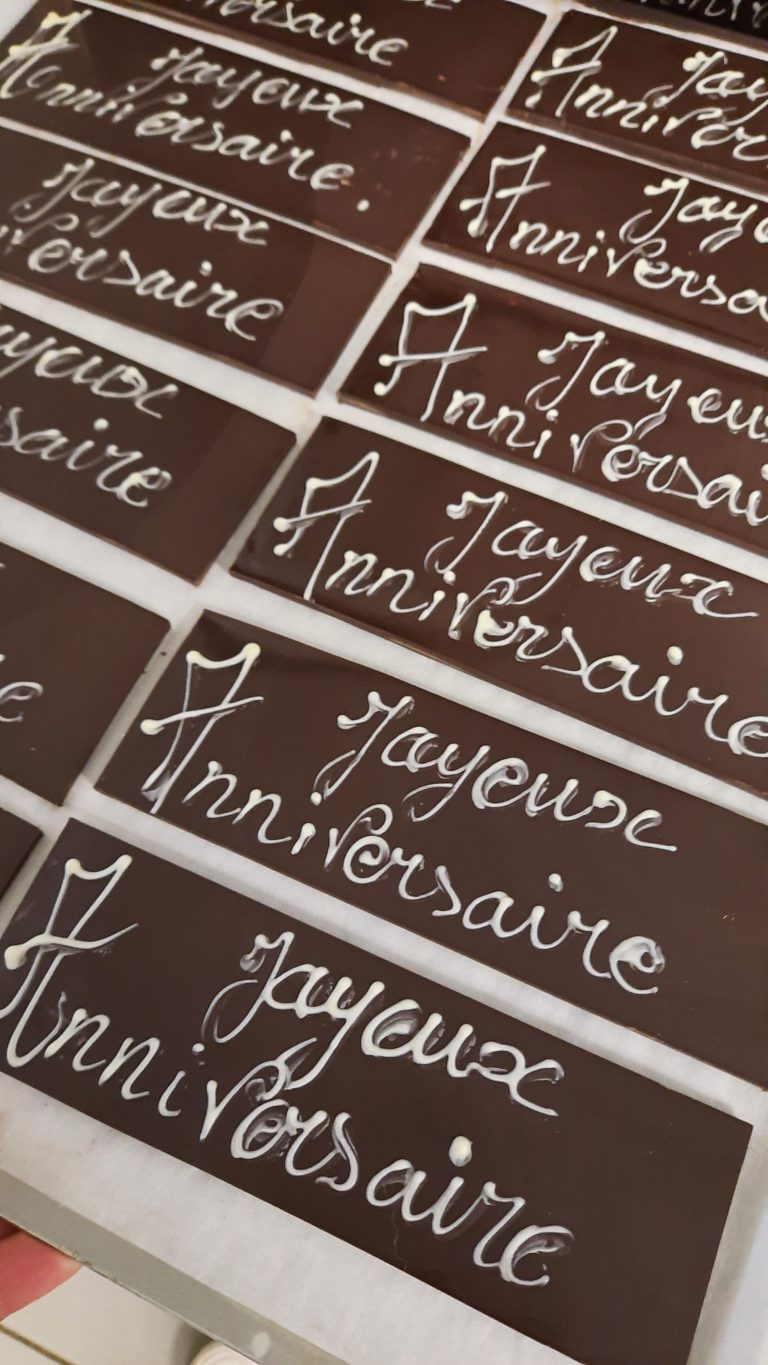 versaire
Joyeux
Anniversaire.
Joyeux
versaire
oyeux
saire
e
Joy
Anniver
Joye
Anniversa
Joyeu
Anniversai
Joyeux
Anniversaire
Joyeux
Anniversaire
Joyeux
Anniversaire